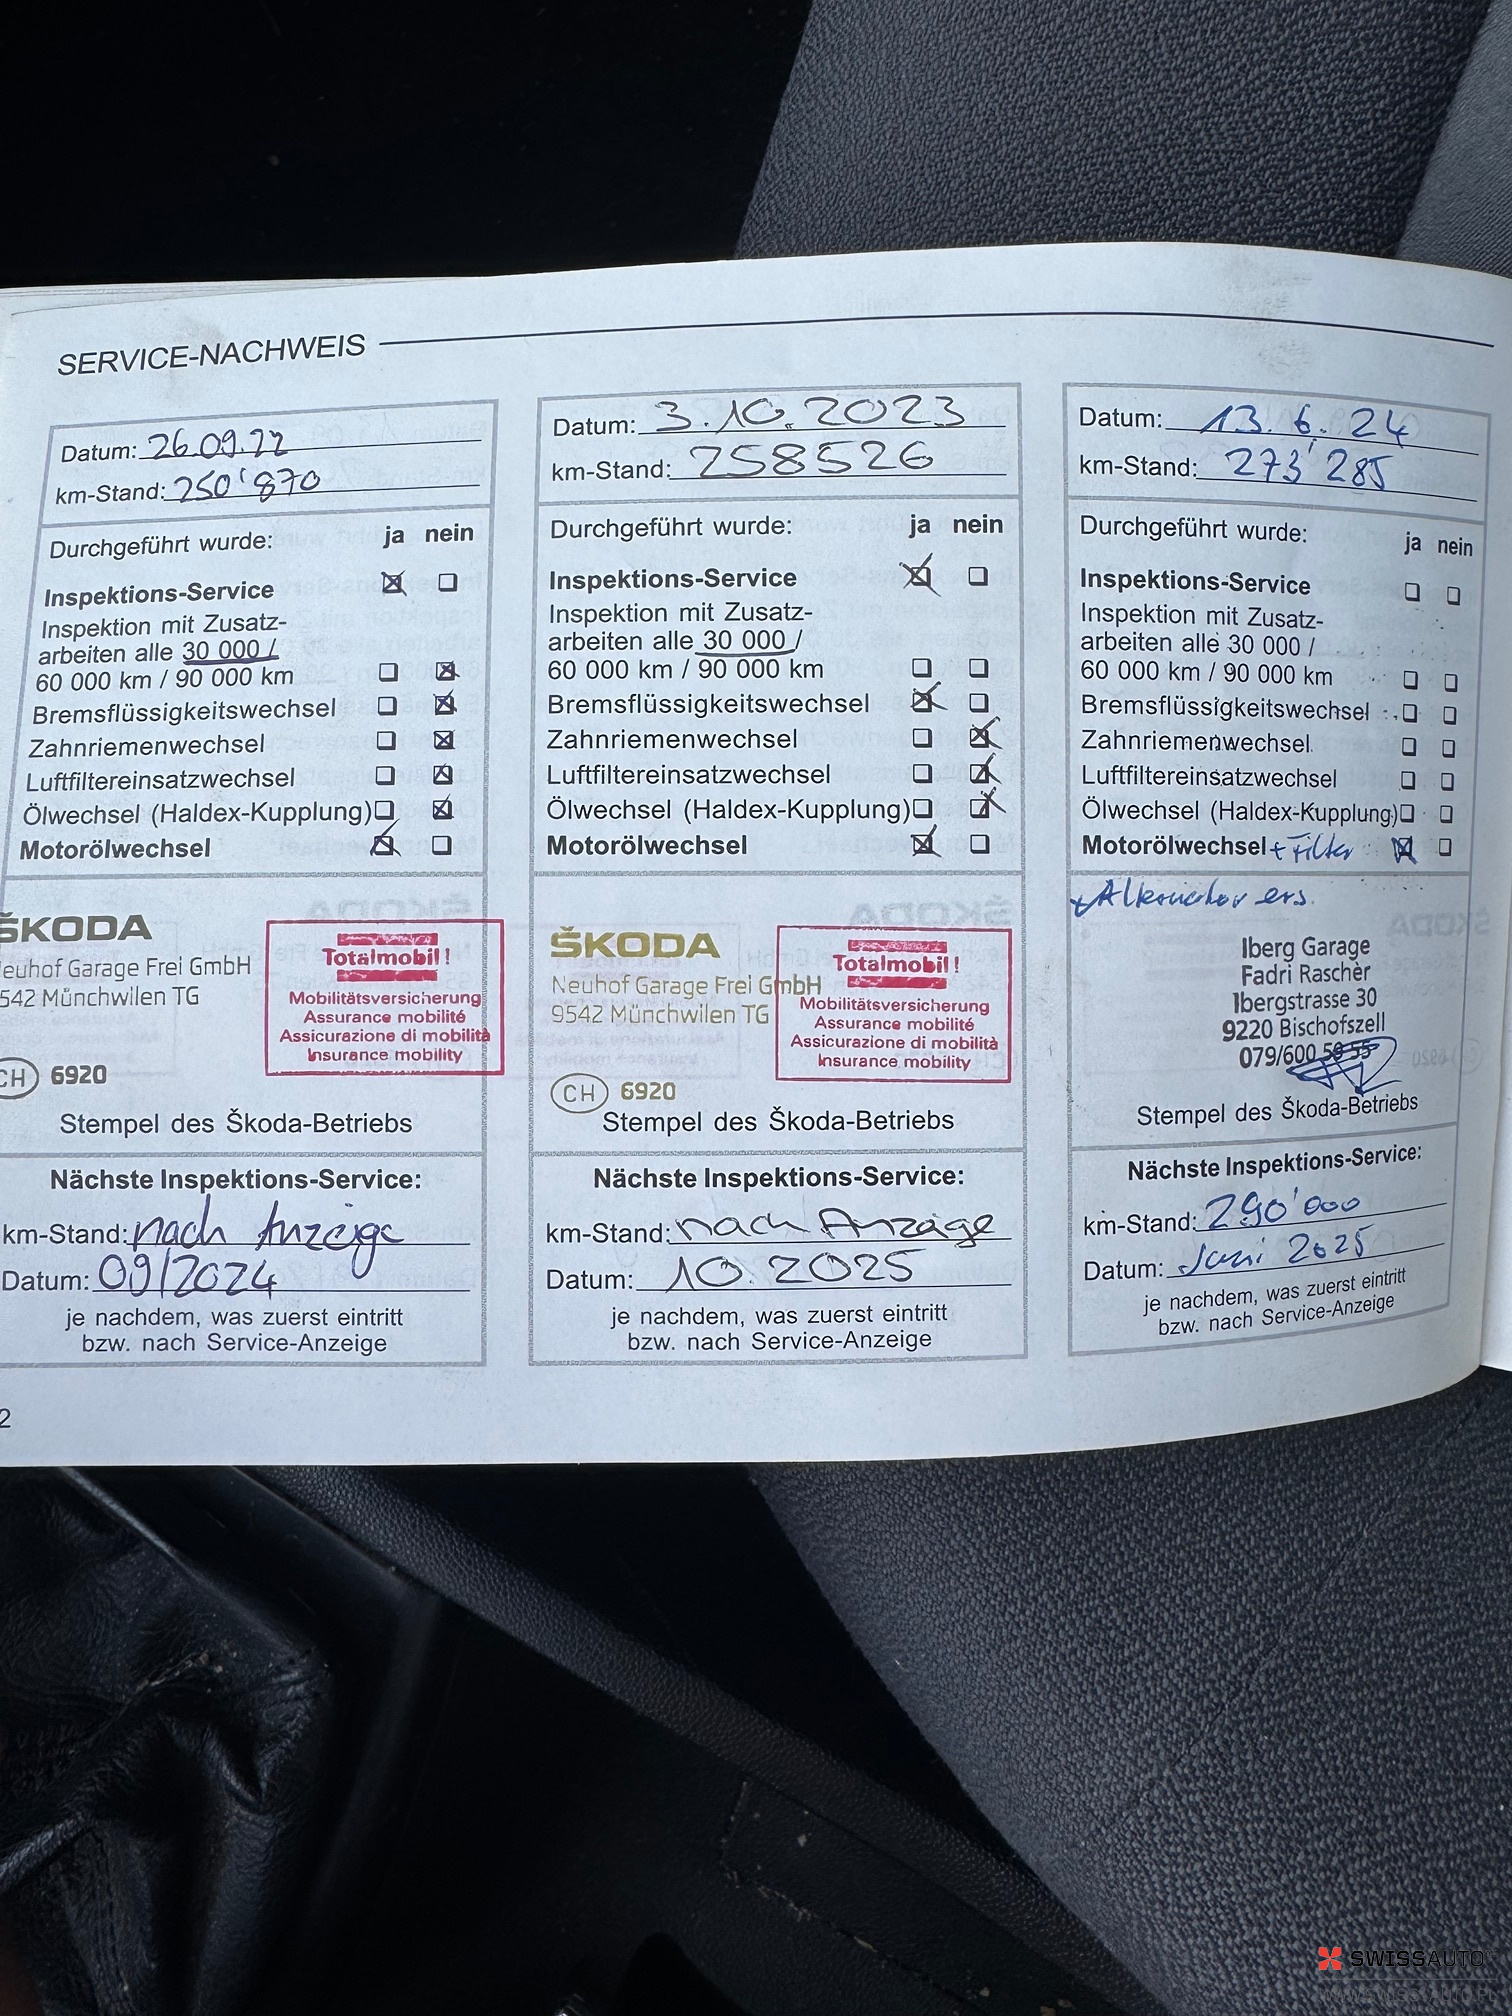 SERVICE-NACHWEIS
Datum: 26.09.22
km-Stand: 250'870
Durchgeführt wurde: ja nein
Inspektions-Service
Inspektion mit Zusatz-
arbeiten alle 30 000 /
60 000 km / 90 000 km
Bremsflüssigkeitswechsel
Zahnriemenwechsel
Luftfiltereinsatzwechsel
Ölwechsel (Haldex-Kupplung)
Motorölwechsel
ŠKODA
Neuhof Garage Frei GmbH
9542 Münchwilen TG
CH 6920
Totalmobil!
Mobilitätsversicherung
Assurance mobilité
Assicurazione di mobilità
Insurance mobility
Stempel des Škoda-Betriebs
Nächste Inspektions-Service:
km-Stand: nach Anzeige
Datum: 09/2024
je nachdem, was zuerst eintritt
bzw. nach Service-Anzeige
2
Datum: 3.10.2023
km-Stand: 258526
Durchgeführt wurde: ja nein
Inspektions-Service
Inspektion mit Zusatz-
arbeiten alle 30 000 /
60 000 km / 90 000 km
Bremsflüssigkeitswechsel
Zahnriemenwechsel
Luftfiltereinsatzwechsel
Ölwechsel (Haldex-Kupplung)
Motorölwechsel
ŠKODA
Neuhof Garage Frei GmbH
9542 Münchwilen TG
CH 6920
Totalmobil!
Mobilitätsversicherung
Assurance mobilité
Assicurazione di mobilità
Insurance mobility
Stempel des Škoda-Betriebs
Nächste Inspektions-Service:
km-Stand: nach Anzeige
Datum: 10.2025
je nachdem, was zuerst eintritt
bzw. nach Service-Anzeige
Datum: 13.6.24
km-Stand: 273'285
Durchgeführt wurde: ja nein
Inspektions-Service
Inspektion mit Zusatz-
arbeiten alle 30 000 /
60 000 km / 90 000 km
Bremsflüssigkeitswechsel
Zahnriemenwechsel
Luftfiltereinsatzwechsel
Ölwechsel (Haldex-Kupplung)
Motorölwechsel + Filter
+ Alternator ers.
Iberg Garage
Fadri Rascher
Ibergstrasse 30
9220 Bischofszell
079/600 59 55
Stempel des Škoda-Betriebs
Nächste Inspektions-Service:
km-Stand: 290'000
Datum: Juni 2025
je nachdem, was zuerst eintritt
bzw. nach Service-Anzeige
SWISSAUTO